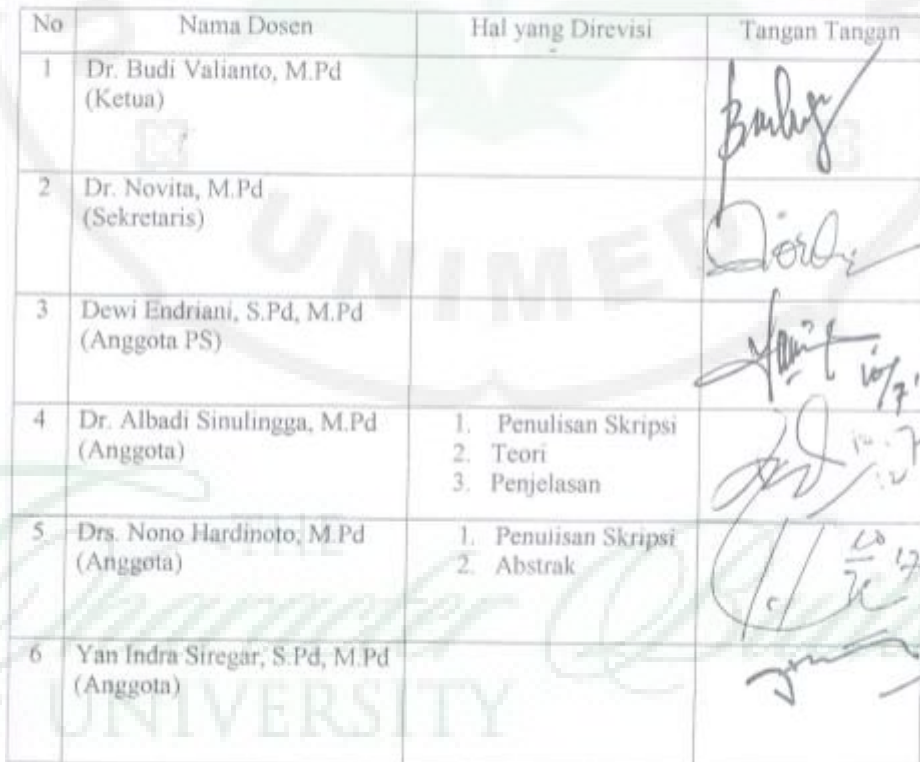 No Nama Dosen Hal yang Direvisi Tangan Tangan
1 Dr. Budi Valianto, M.Pd
(Ketua)
2 Dr. Novita, M.Pd
(Sekretaris)
3 Dewi Endriani, S.Pd, M.Pd
(Anggota PS)
4 Dr. Albadi Sinulingga, M.Pd 1. Penulisan Skripsi
(Anggota) 2. Teori
3. Penjelasan
5 Drs. Nono Hardinoto, M.Pd 1. Penulisan Skripsi
(Anggota) 2. Abstrak
6 Yan Indra Siregar, S.Pd, M.Pd
(Anggota)
UNIMED
THE
Character
UNIVERSITY